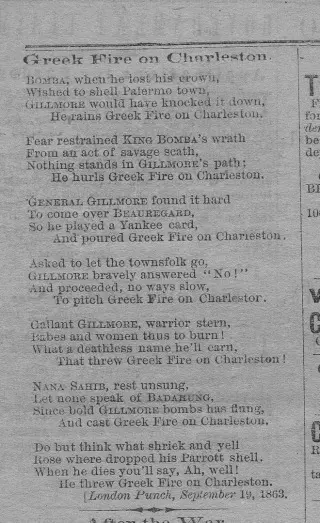 Greek Fire on Charleston.
BOMBA, when he lost his crown,
Wished to shell Palermo town,
GILLMORE would have knocked it down,
He rains Greek Fire on Charleston.
Fear restrained KING BOMBA's wrath
From an act of savage scath,
Nothing stands in GILLMORE's path;
He hurls Greek Fire on Charleston.
GENERAL GILLMORE found it hard
To come over BEAUREGARD,
So he played a Yankee card,
And poured Greek Fire on Charleston.
Asked to let the townsfolk go,
GILLMORE bravely answered "No!"
And proceeded, no ways slow,
To pitch Greek Fire on Charlestor.
Gallant GILLMORE, warrior stern,
Babes and women thus to burn!
What a deathless name he'll earn,
That threw Greek Fire on Charleston!
NANA SAHIB, rest unsung,
Let none speak of BADAHUNG,
Since bold GILLMORE bombs has flung,
And cast Greek Fire on Charleston.
Do but think what shriek and yell
Rose where dropped his Parrott shell.
When he dies you'll say, Ah, well!
He threw Greek Fire on Charleston.
[London Punch, September 19, 1863.
After the War